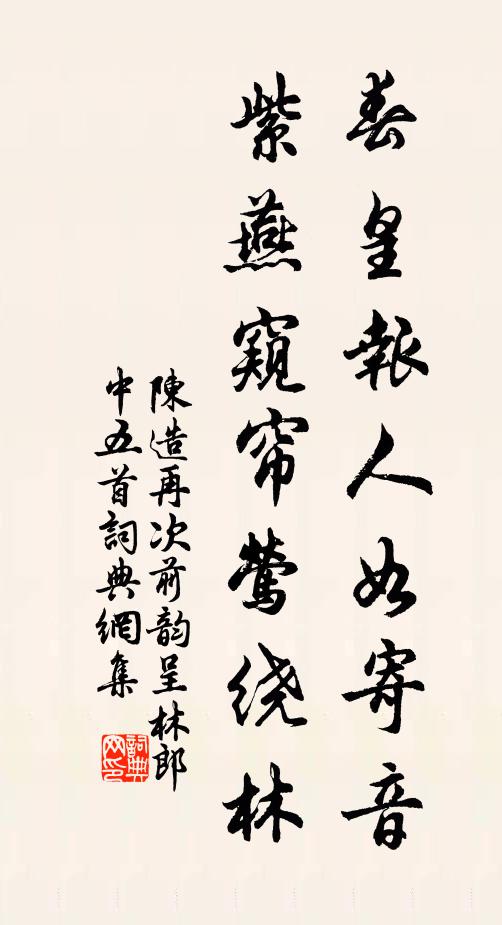 春皇報人如寄音
紫燕窺帘鶯绕林
陳造再次前韵呈林郎
中五首詞典網集
詞典
网印